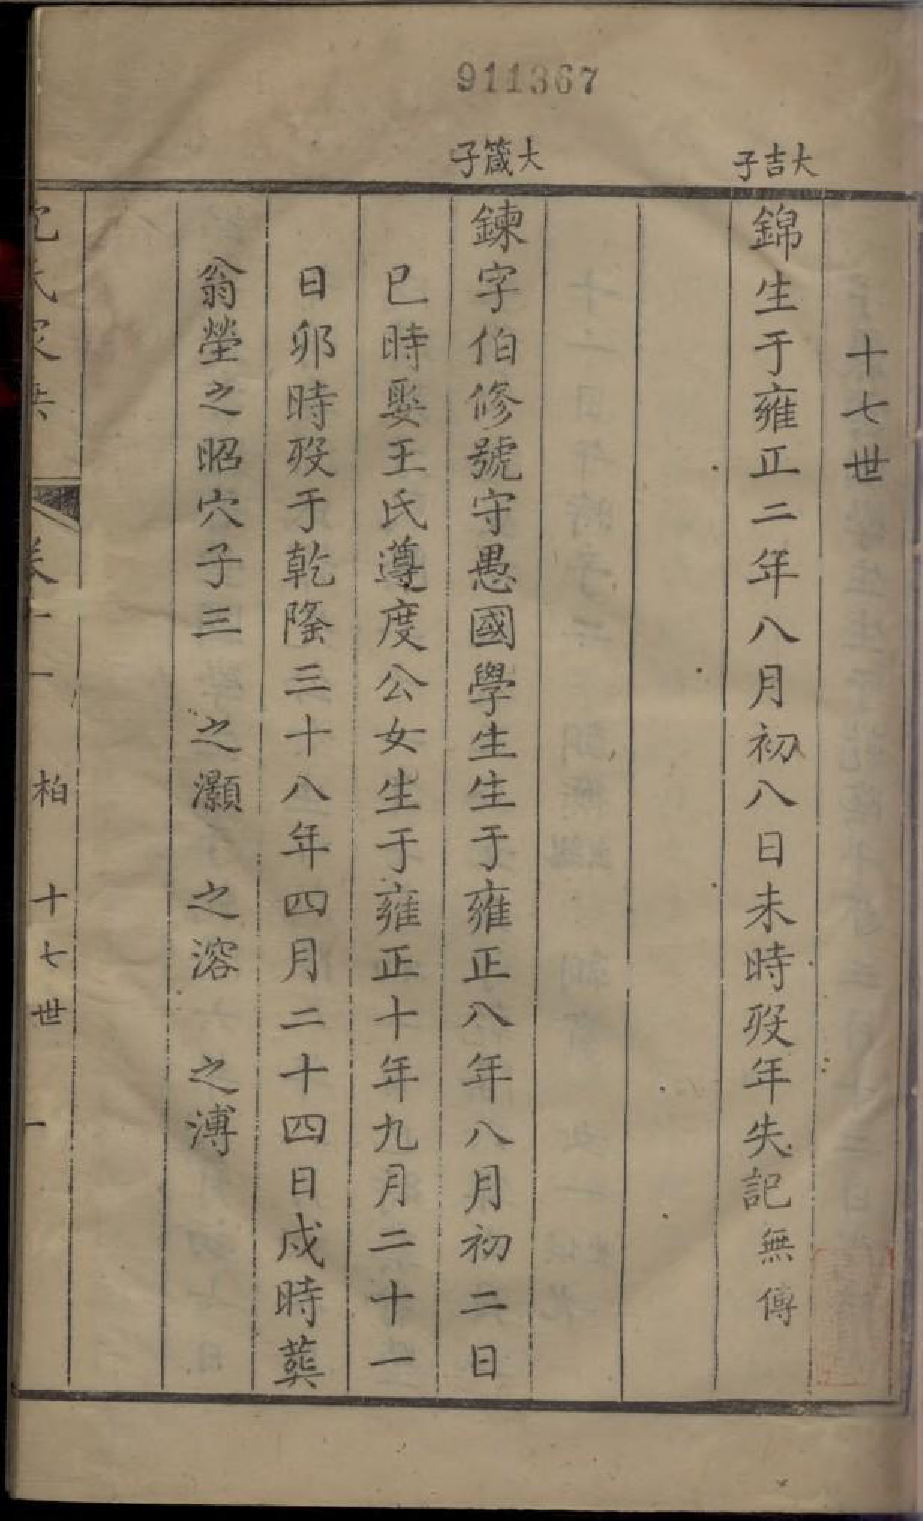 911367
十七世
大吉子
錦生于雍正二年八月初八日未時歿年失記無傳
大箴子
鍊字伯修號守愚國學生生于雍正八年八月初二日
巳時娶王氏遵度公女生于雍正十年九月二十一
日卯時歿于乾隆三十八年四月二十四日戌時葬
翁塋之昭穴子三 之灝 之溶 之溥
氏家
柏 十七世 一